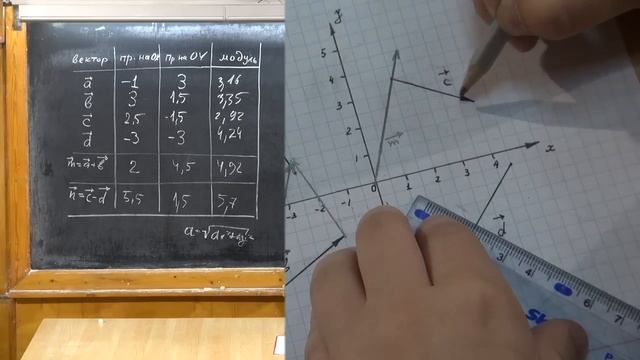 вектор пр. на OX пр на OY модуль
a⃗ -1 3 3,16
b⃗ 3 1,5 3,35
c⃗ 2,5 -1,5 2,92
d⃗ -3 -3 4,24
m⃗=a⃗+b⃗ 2 4,5 4,92
n⃗=c⃗-d⃗ 5,5 1,5 5,7
y
5
4
3
2
1
c⃗
m⃗
x
-3 -2 -1 0 1 2 3 4 5
d⃗
3 4 5 6 7